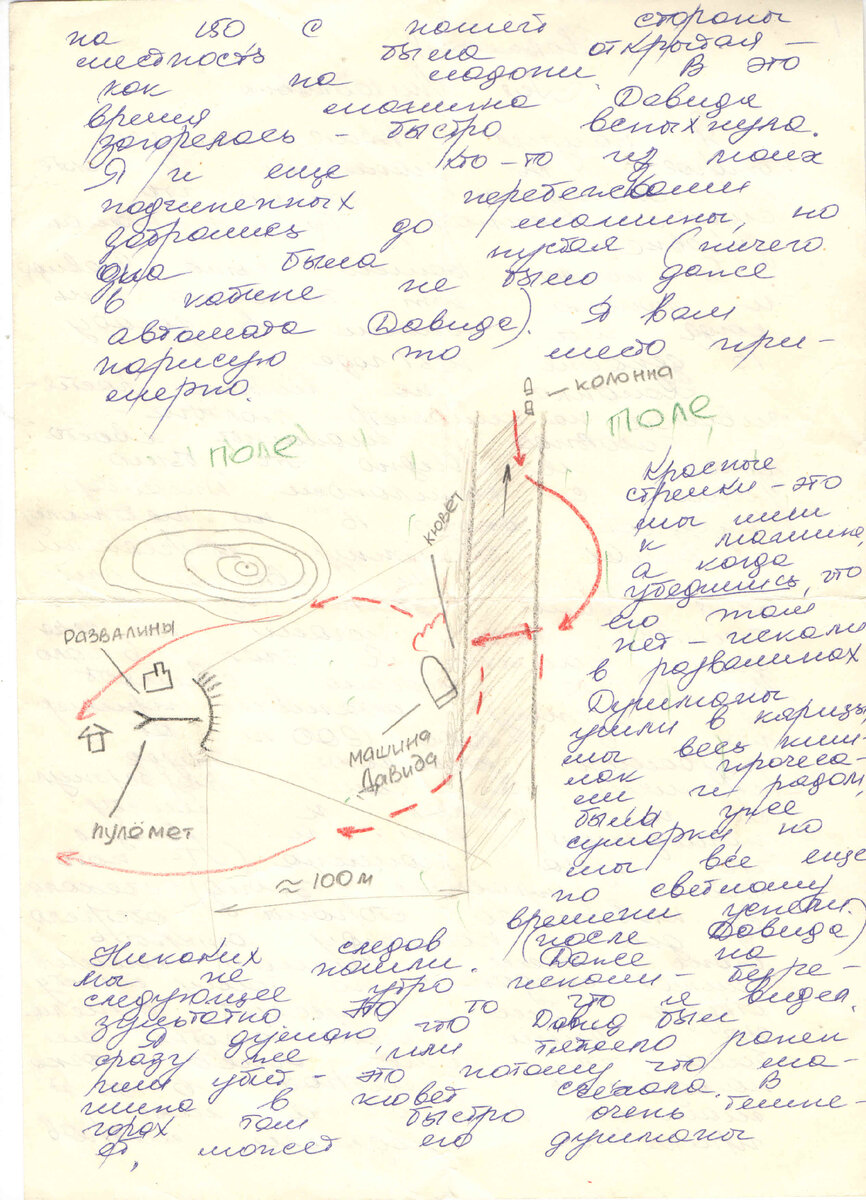 на 150 с нашей стороны
местность была открытая –
как на ладони. В это
время машина Давида
загорелась – быстро вспыхнула.
Я и еще кто-то из моих
подчиненных перебежками
добрались до машины, но
она была пустая (ничего
в кабине не было даже
автомата Давида). Я вам
нарисую то место при-
мерно.
колонна
поле
поле
кювет
развалины
машина
Давида
пулемёт
≈ 100 м
Красные
стрелки – это
мы шли
к машине,
а когда
убедились, что
его там
нет – искали
в развалинах
Душманы
ушли в каризы,
мы весь киш-
лак прочеса-
ли и рядом,
были уже
сумерки но
мы все еще
по светлому
времени успели.
Никаких следов (после Давида)
мы не нашли. Даже на
следующее утро искали – безре-
зультатно это то что я видел.
Я думаю что Давид был
сразу же или тяжело ранен
или убит – это потому что ма-
шина в кювет съехала. В
горах там быстро очень темне-
ет, может его душманы